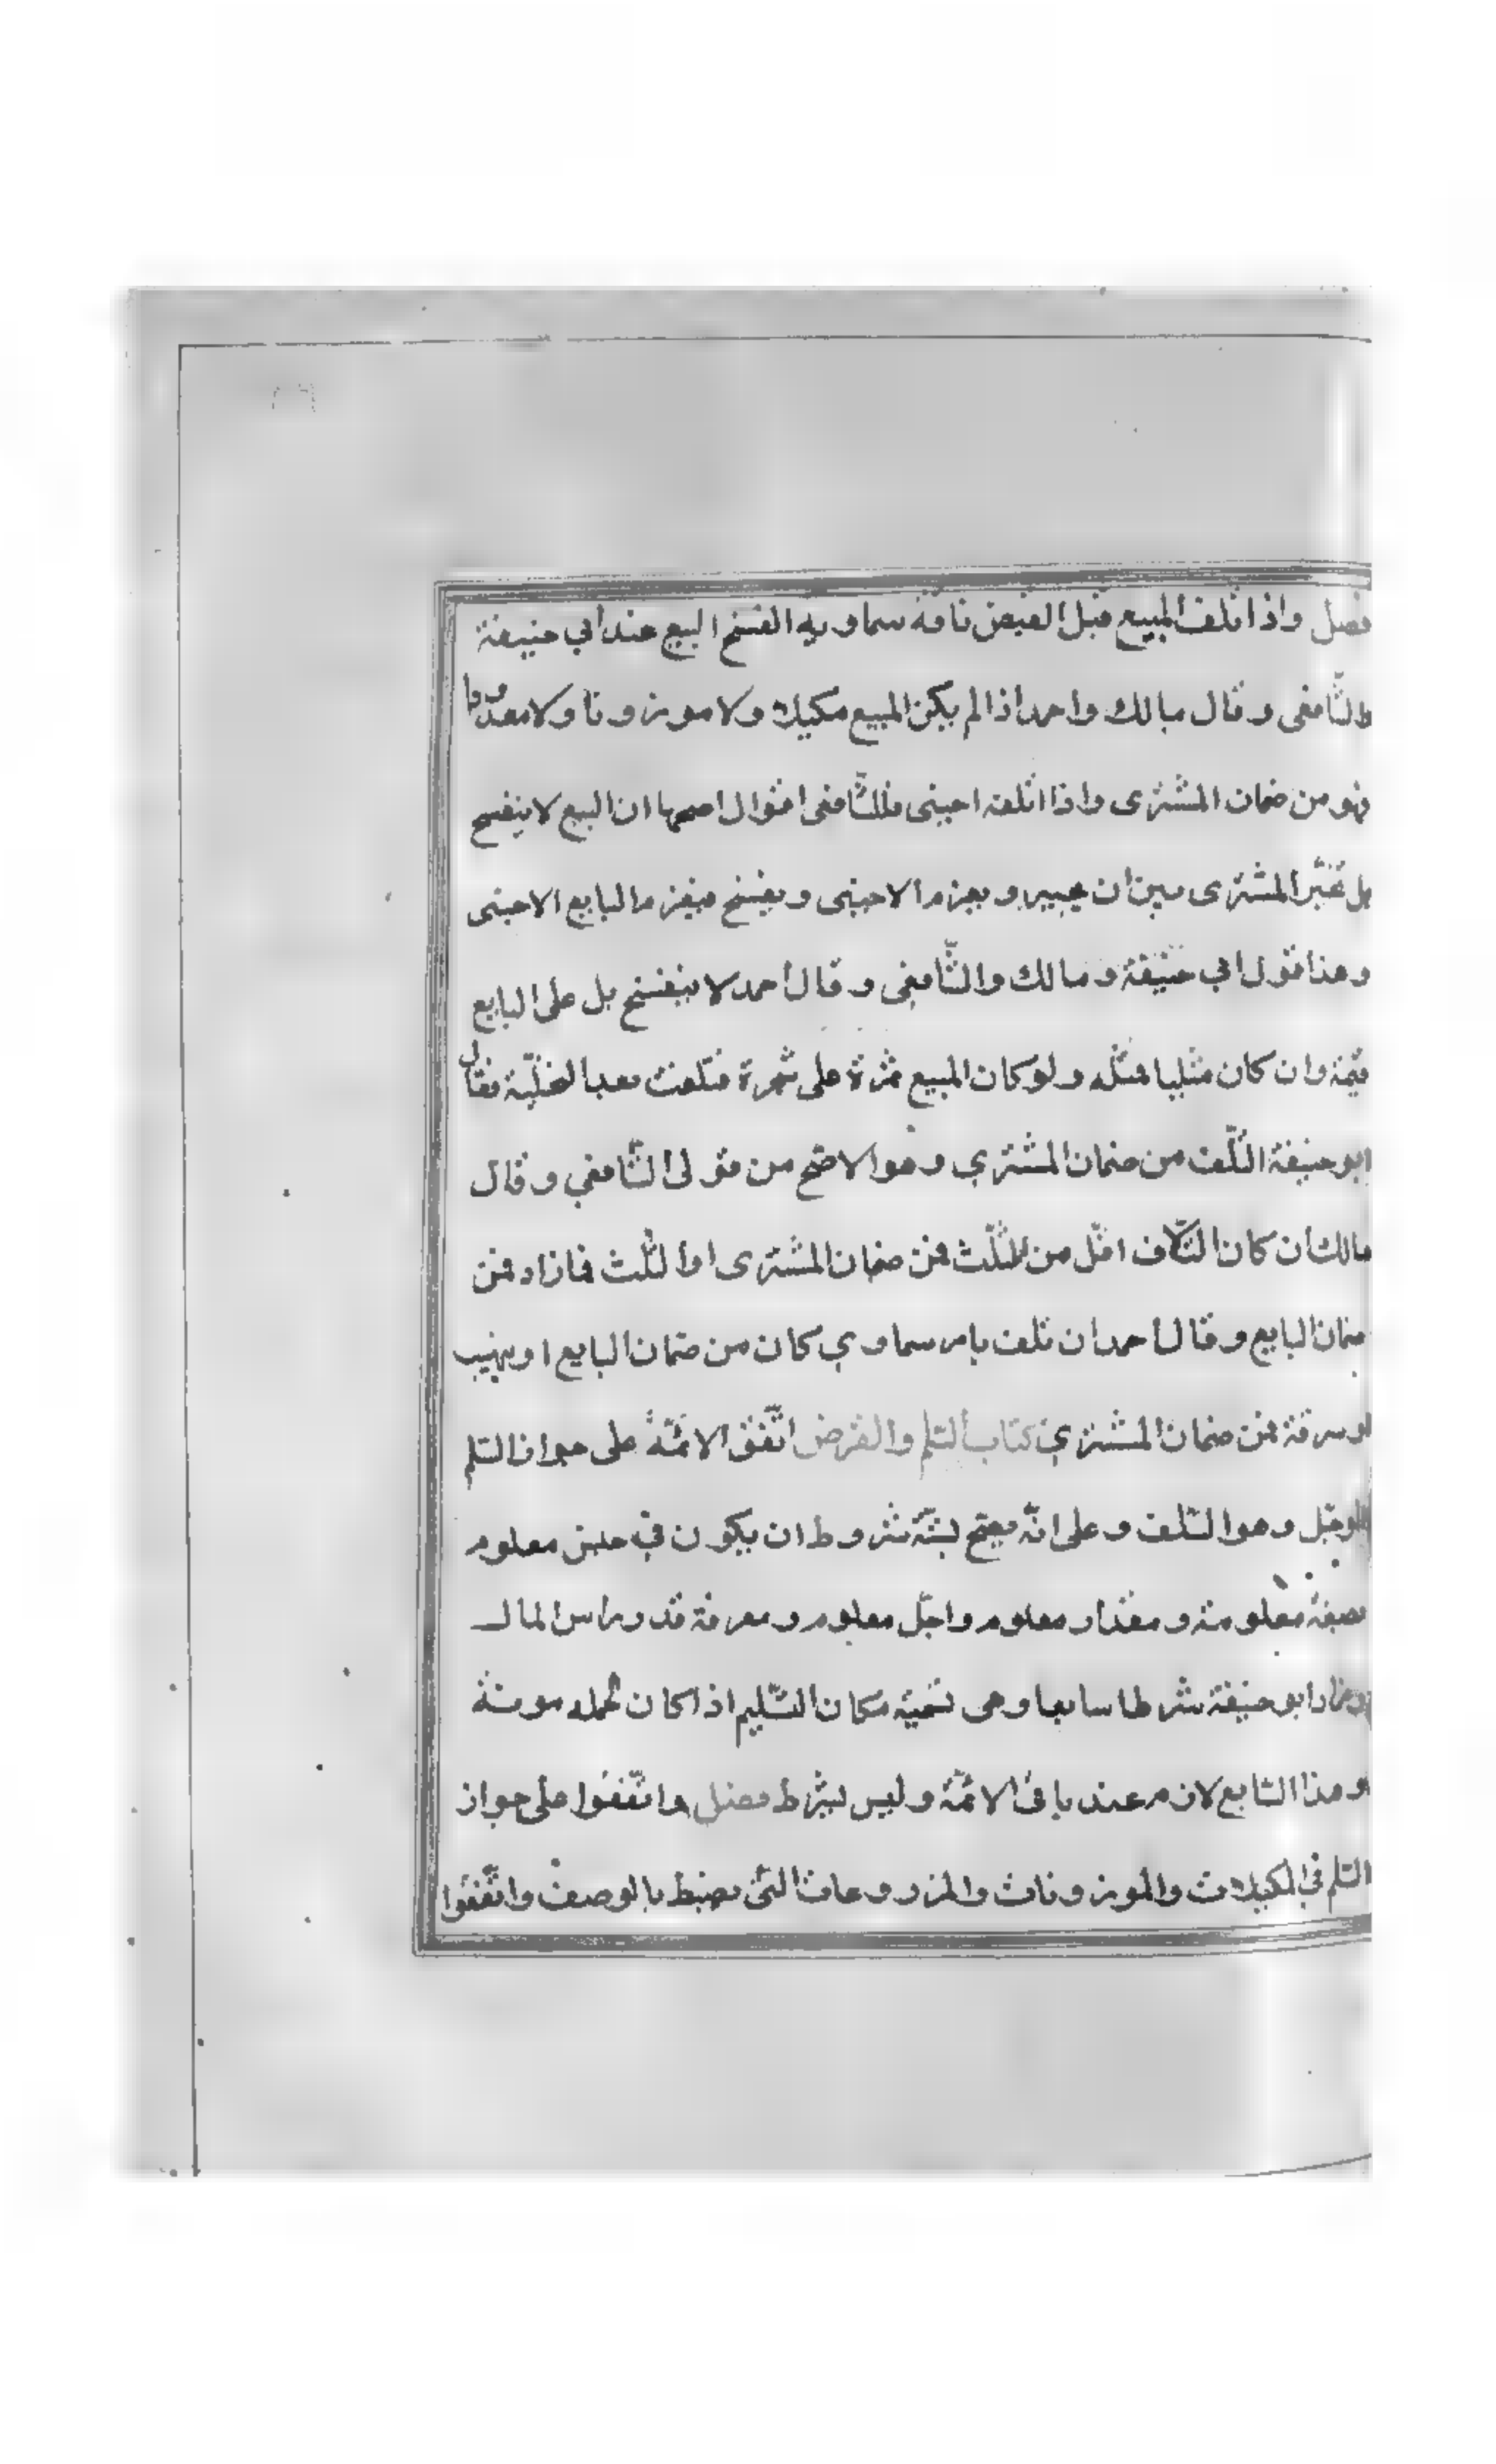 فصل واذا تلف المبيع قبل القبض بافة سماوية انفسخ البيع عند ابي حنيفة
والشّافعى وقال مالك واحمد اذا لم يكن المبيع مكيلا ولا موزونا ولا معدودا
فهو من ضمان المشترى واذا اتلفه اجنبى فللشّافعى اقوال اصحها ان البيع لا ينفسخ
بل يخيّر المشترى بين ان يجيز ويغرم الاجنبى ويفسخ فيغرم البايع الاجنبى
وهذا قول ابي حنيفة ومالك والشّافعى وقال احمد لا ينفسخ بل على البايع
قيمة وان كان مثليا فمثله ولو كان المبيع ثمرة على شجرة فتلفت بعد التخلّية فقال
ابو حنيفة التّلف من ضمان المشتري وهو الاصّح من قولى الشّافعي وقال
مالك ان كان التّلاف اقلّ من الثلّث فمن ضمان المشترى او الثلّث فما زاد فمن
ضمان البايع وقال احمد ان تلف بامر سماوي كان من ضمان البايع او بنهب
او سرقة فمن ضمان المشتري كتاب السّلم والقرض اتّفق الائمّة على جواز السّلم
المؤجّل وهو السّلف وعلى انّه يصّح بستّة شروط ان يكون في جنس معلوم
بصفة معلومة ومقدار معلوم واجّل معلوم ومعرفة قدر راس المال
وزاد ابو حنيفة شرطا سابعا وهى تسميّة مكان التسّليم اذا كان لحمله مونة
وهذا السّابع لازم عند باقى الائمّة وليس بشرط فصل واتّفقوا على جواز
السّلم في المكيلات والموزونات والمزروعات التّى يضبط بالوصف واتّفقوا